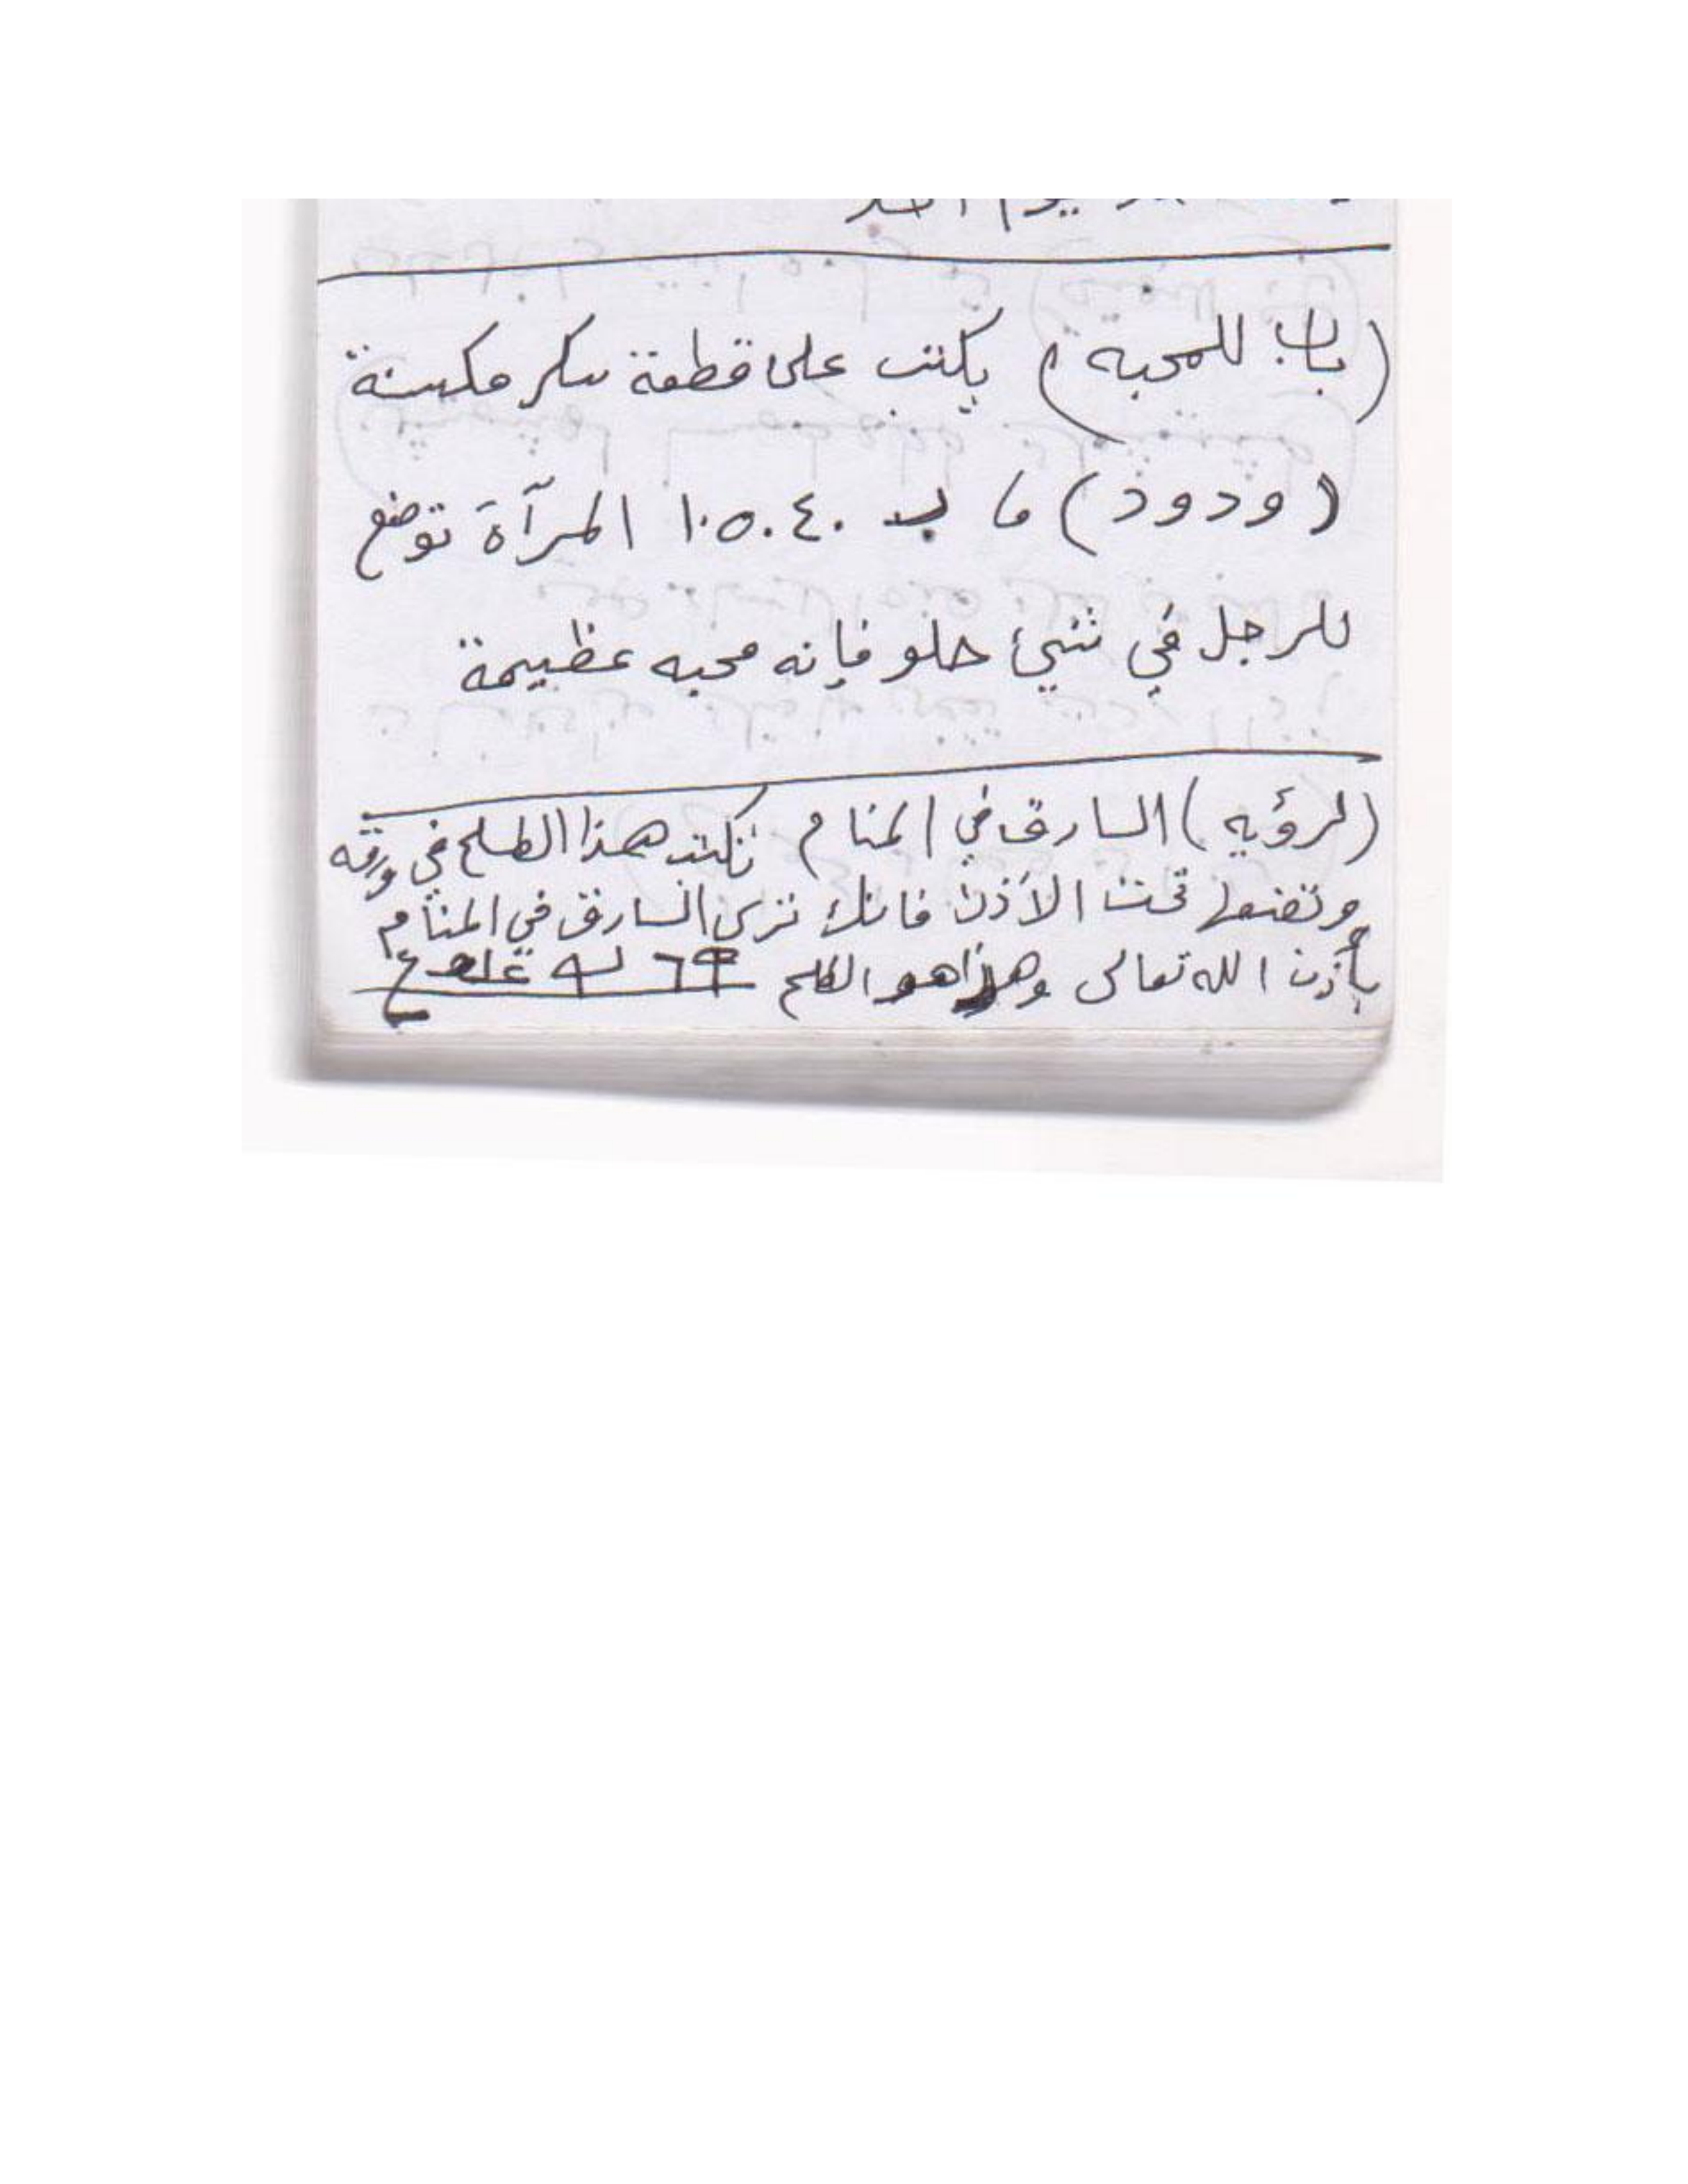 يوم احد
(باب للمحبه) يكتب على قطعة سكر مكسنة
(ودود) ما ب ١٠٥٠٤٠ المرآة توضع
للرجل في شيئ حلو فإنه محبه عظيمة
(لرؤيه) السارق في المنام تكتب هذا الطلسم في ورقه
وتضعها تحت الأذن فانك ترى السارق في المنام
بأذن الله تعالى وهذا هو الطلسم